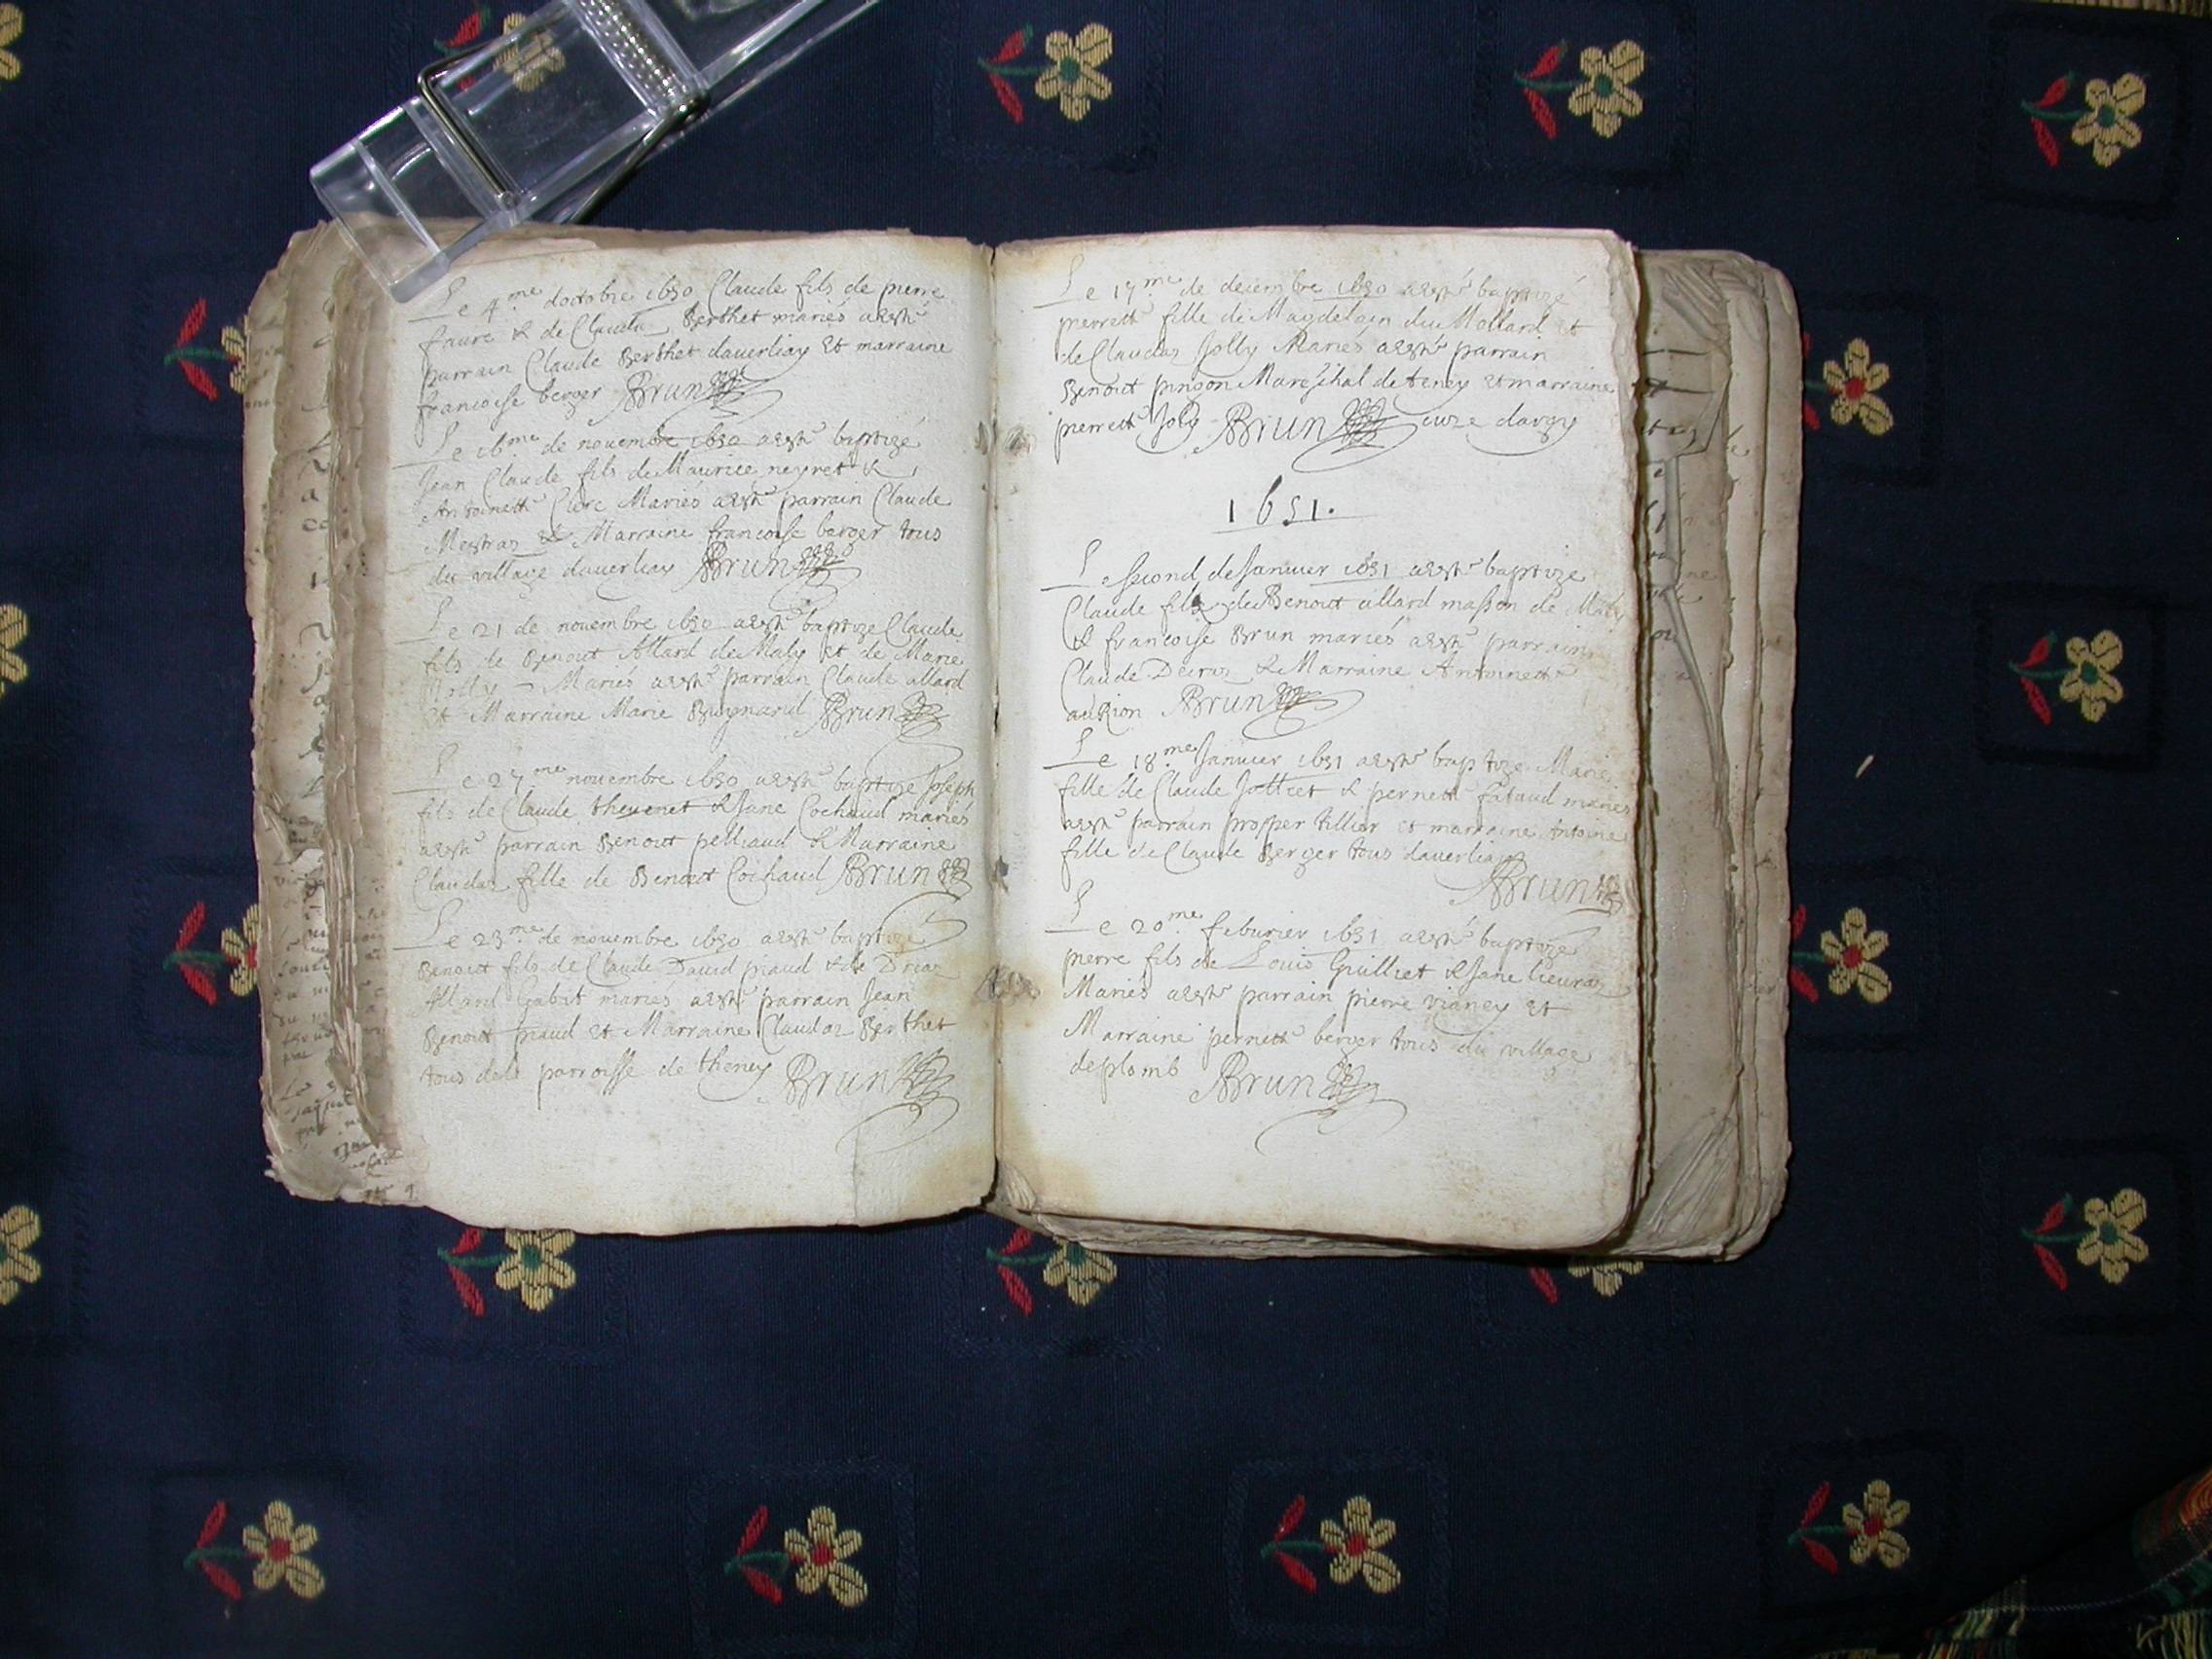 Le 4.me doctobre 1650 Claude fils de pierre
faure & de Clauda Berthet mariés a esté
parrain Claude Berthet dauerliaz Et marraine
francoise berger Brun
Le 16.me de nouembre 1650 a esté baptizé
Jean Claude fils de Maurice neyret &
Antoinette Clerc Mariés a esté parrain Claude
Mestraz & Marraine francoise berger tous
du village dauerliaz Brun
Le 21 de nouembre 1650 a esté baptize Claude
fils de Benoit Allard de Maly et de Marie
Mariés a esté parrain Claude allard
Et Marraine Marie Brun
Le 27.me nouembre 1650 a esté baptize Joseph
fils de Claude theuenet & Jane Cochaud mariés
a esté parrain Benoit pelliaud & Marraine
Claudaz fille de Benoit Cochaud Brun
Le 23.me de nouembre 1650 a esté baptizé
Benoit fils de Claude Dauid piaud & de
Allard Gabit mariés a esté parrain Jean
Benoit piaud et Marraine Claudaz Berthet
tous de la parroisse de theney Brun
Le 17.me de decembre 1650 a esté baptizé
pierrette fille de Magdelain du Mollard et
de Claudaz Jolly Mariés a esté parrain
Benoit pinson Mareschal de teney Et marraine
pierrette Joly Brun cure
1651.
Le second de Januier 1651 a esté baptize
Claude fils de Benoit allard masson de Maly
& francoise Brun mariés a esté parrain
Claude & Marraine Antoinette
Brun
Le 18.me Januier 1651 a esté baptize Marie
fille de Claude Jolliet & pernette fataud mariés
a esté parrain prosper tillier et marraine Antoine
fille de Claude Berger tous dauerliaz
Brun
Le 20.me feburier 1651 a esté baptizé
pierre fils de Louis Guilliet & Jane lieuraz
Mariés a esté parrain pierre vianey Et
Marraine pernette berger tous du village
de plomb Brun